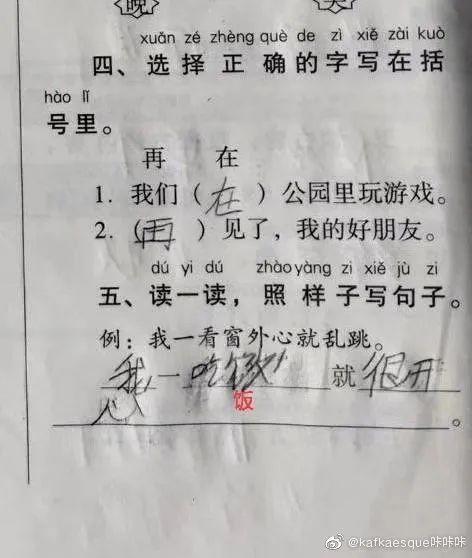 晚 美
xuǎn zé zhèng què de zì xiě zài kuò
四、选择正确的字写在括
hào lǐ
号里。
再 在
1. 我们（在）公园里玩游戏。
2.（再）见了，我的好朋友。
dú yi dú zhào yàng zi xiě jù zi
五、读一读，照样子写句子。
例：我一看窗外心就乱跳。
我一吃饭就很开
饭
心。
@kafkaesque咔咔咔